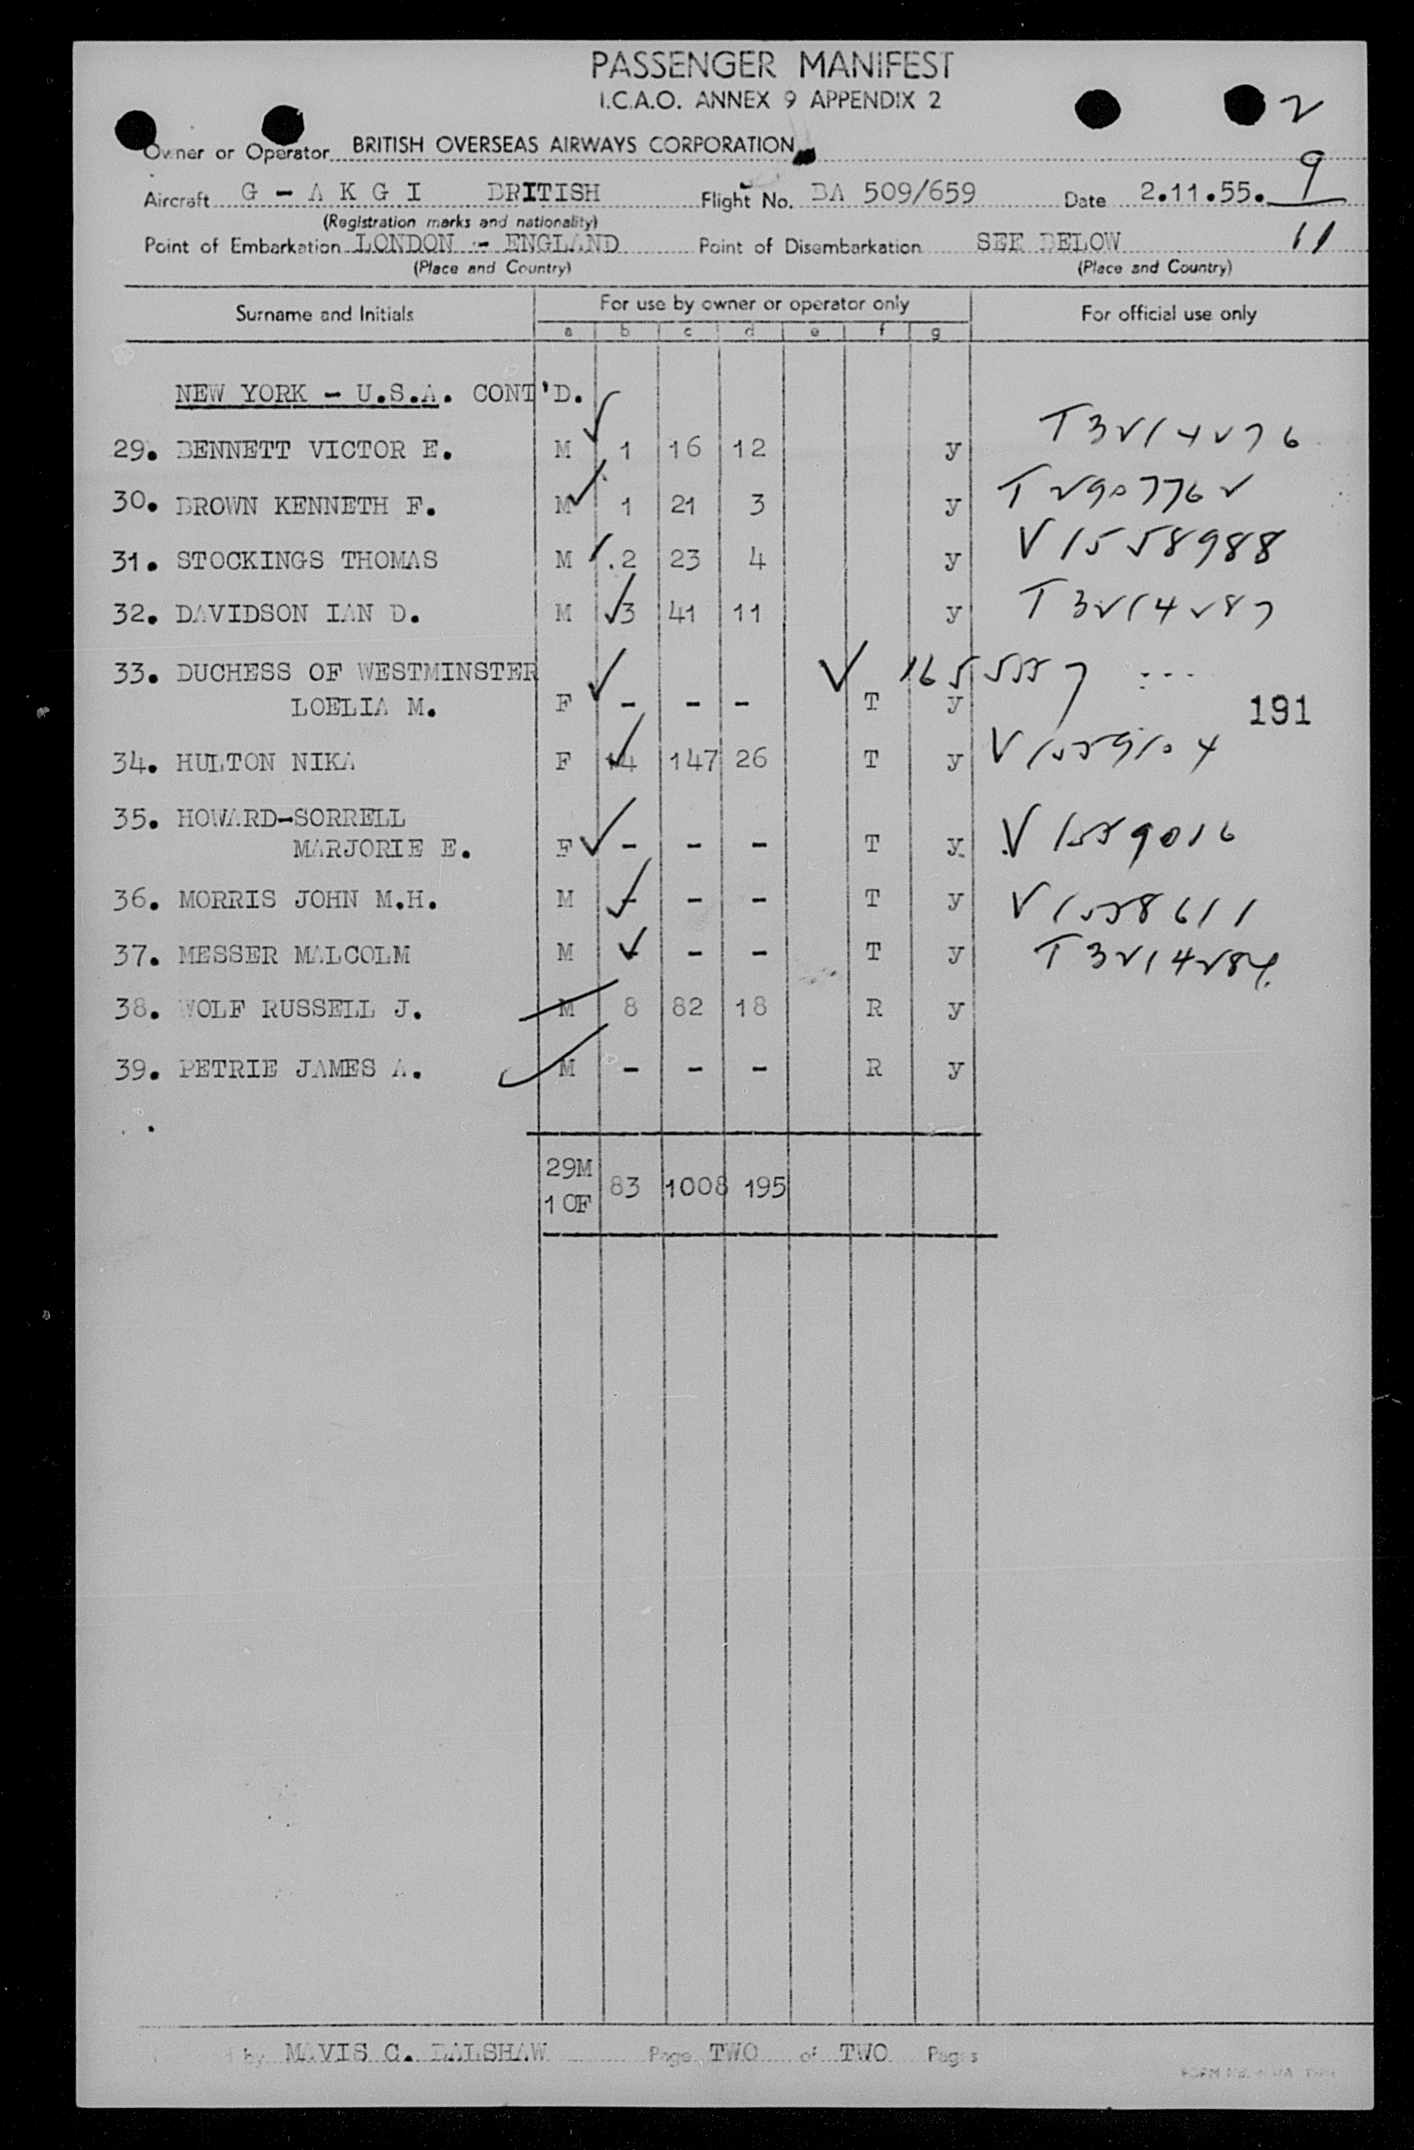 PASSENGER MANIFEST
I.C.A.O. ANNEX 9 APPENDIX 2
2
Owner or Operator BRITISH OVERSEAS AIRWAYS CORPORATION
9
Aircraft G - A K G I BRITISH Flight No. BA 509/659 Date 2.11.55.
(Registration marks and nationality)
11
Point of Embarkation LONDON - ENGLAND Point of Disembarkation SEE BELOW
(Place and Country) (Place and Country)
Surname and Initials For use by owner or operator only For official use only
a b c d e f g
NEW YORK - U.S.A. CONT'D.
29. BENNETT VICTOR E. M 1 16 12 y T3214276
30. BROWN KENNETH F. M 1 21 3 y T2907762
31. STOCKINGS THOMAS M 2 23 4 y V1558988
32. DAVIDSON IAN D. M 3 41 11 y T3214287
33. DUCHESS OF WESTMINSTER V 1655557
LOELIA M. F - - - T y 191
34. HULTON NIKA F 14 147 26 T y V1559104
35. HOWARD-SORRELL
MARJORIE E. F - - - T y V1559016
36. MORRIS JOHN M.H. M - - - T y V1558611
37. MESSER MALCOLM M - - - T y T3214284
38. WOLF RUSSELL J. M 8 82 18 R y
39. PETRIE JAMES A. M - - - R y
29M
83 1008 195
10F
by MAVIS C. BALSHAW Page TWO of TWO Pages